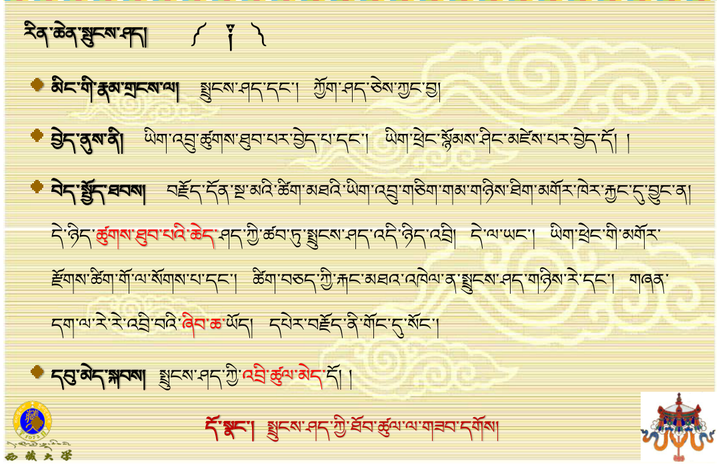 རིན་ཆེན་སྤུངས་ཤད། ༼ ༑ ༽
མིང་གི་རྣམ་གྲངས་ལ། སྤུངས་ཤད་དང་། ཀྱོག་ཤད་ཅེས་ཀྱང་བྱ།
བྱེད་ནུས་ནི། ཡིག་འབྲུ་ཚུགས་ཐུབ་པར་བྱེད་པ་དང་། ཡིག་ཕྲེང་སྙོམས་ཤིང་མཛེས་པར་བྱེད་དོ། །
བེད་སྤྱོད་ཐབས། བརྗོད་དོན་སྔ་མའི་ཚིག་མཐའི་ཡིག་འབྲུ་གཅིག་གམ་གཉིས་ཐིག་མགོར་ཁེར་རྐྱང་དུ་བྱུང་ན།
དེ་ཉིད་ཚུགས་ཐུབ་པའི་ཆེད་ཤད་ཀྱི་ཚབ་ཏུ་སྤུངས་ཤད་འདི་ཉིད་འབྲི། དེ་ལ་ཡང་། ཡིག་ཕྲེང་གི་མགོར་
རྫོགས་ཚིག་གོ་ལ་སོགས་པ་དང་། ཚིག་བཅད་ཀྱི་རྐང་མཐའ་འཁེལ་ན་སྤུངས་ཤད་གཉིས་རེ་དང་། གཞན་
དག་ལ་རེ་རེ་འབྲི་བའི་ཞིབ་ཆ་ཡོད། དཔེར་བརྗོད་ནི་གོང་དུ་སོང་།
དབུ་མེད་སྐབས། སྤུངས་ཤད་ཀྱི་འབྲི་ཚུལ་མེད་དོ། །
དོ་སྣང་། སྤུངས་ཤད་ཀྱི་ཐོབ་ཚུལ་ལ་གཟབ་དགོས།
西藏大学